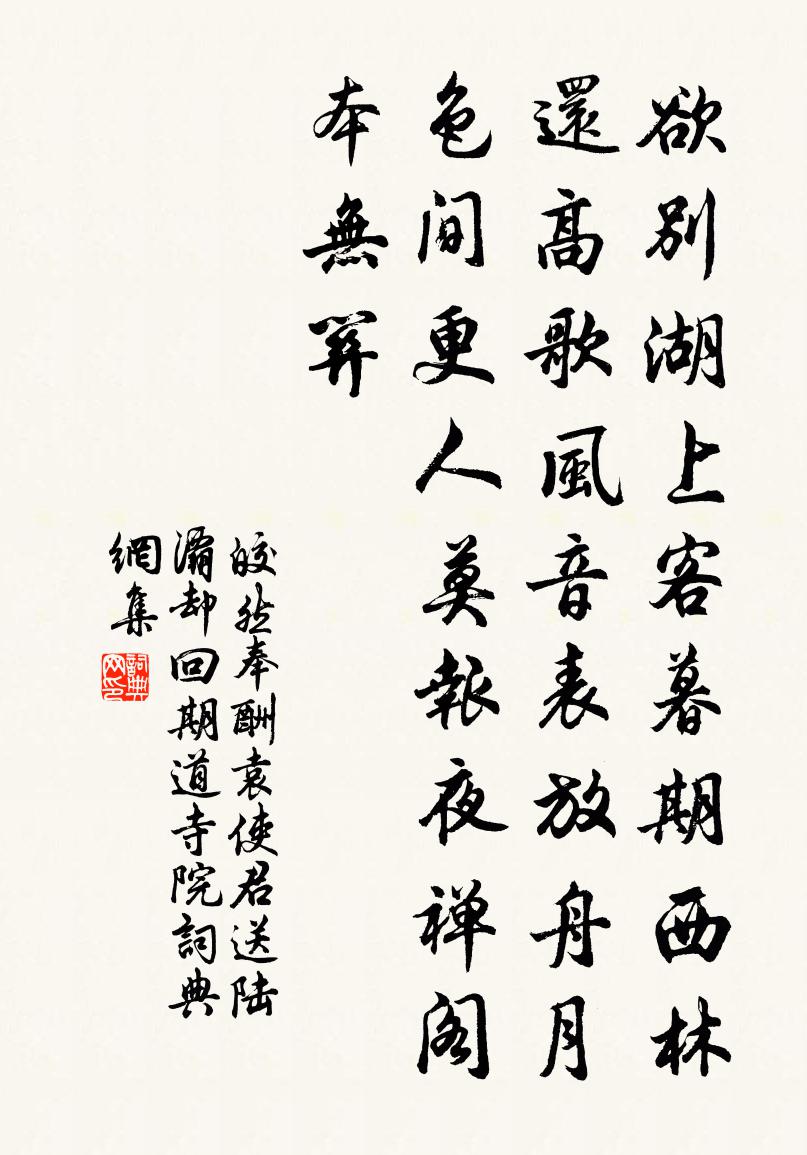 欲別湖上客暮期西林
還高歌風音表放舟月
色间更人莫報夜禅阁
本無關
皎然奉酬袁使君送陆
灞却回期道寺院詞典
網集
詞典网印